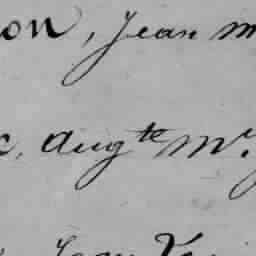 on, Jean m
c, Augte Mr.
Jean